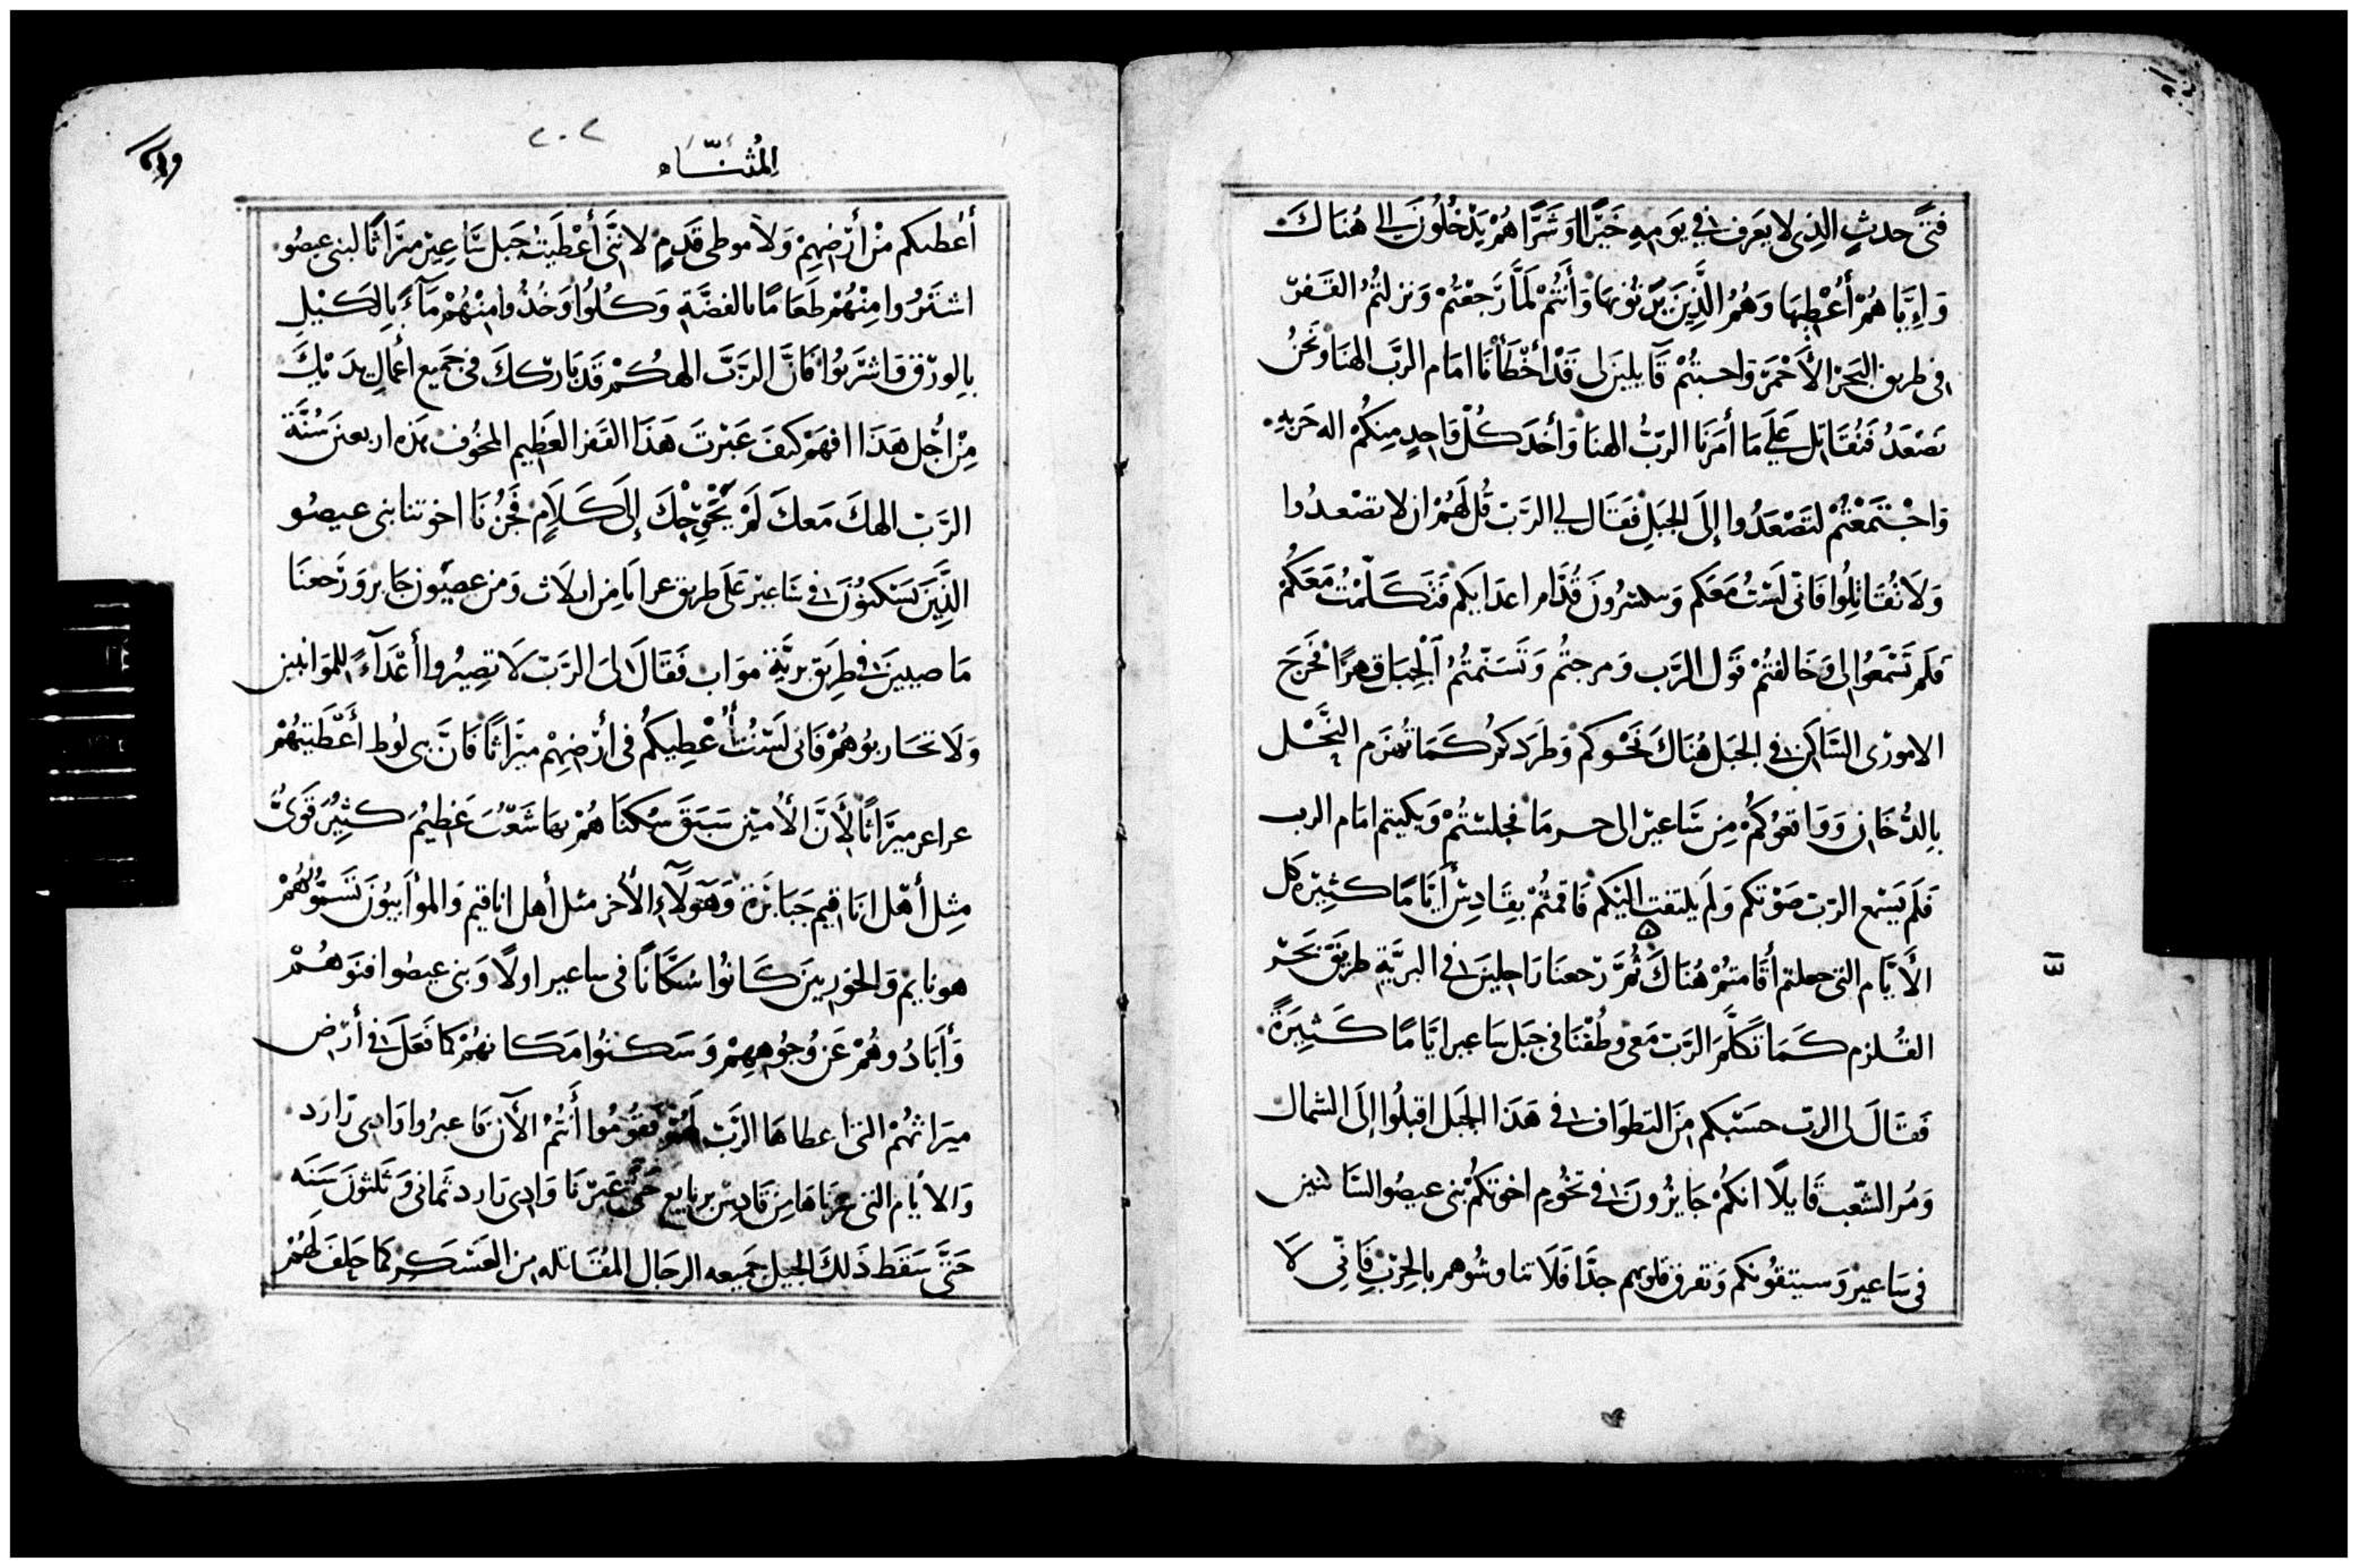 فتى حدث الذى لا يعرف فى يومه خيرا او شرا هم يدخلون الى هناك
واياهم أعطيها وهم الذين يرثونها وأنتم لما رجعتم ونزلتم القفر
فى طريق البحر الأحمر واجبتم قايلين لى قد أخطأنا امام الرب الهنا ونحن
نصعد فنقاتل على ما أمرنا الرب الهنا وأخذ كل واحد منكم اله حربه
واجتمعتم لتصعدوا إلى الجبل فقال لى الرب قل لهم ان لا تصعدوا
ولا تقاتلوا فانى لست معكم وستكسرون قدام اعدايكم فتكلمت معكم
فلم تسمعوا لى وخالفتم قول الرب ومرجتم وتسنمتم ألجبل قهرا فخرج
الامورى الساكن فى الجبل هناك نحوكم وطردكم كما تهزم النحل
بالدخان وواقعوكم من ساعير الى حرما فجلستم وبكيتم امام الرب
فلم يسمع الرب صوتكم ولم يلتفت اليكم فاقمتم بقادس أياما كثيره كل
الأيام التى جعلتم أقامتم هناك ثم رجعنا راحلين فى البرية طريق بحر
القلزم كما تكلم الرب معى وطفنا فى جبل ساعير اياما كثيرة
فقال لى الرب حسبكم من التطواف فى هذا الجبل اقبلوا إلى الشمال
ومر الشعب قايلا انكم جايزون فى تخوم اخوتكم بنى عيصو الساكنين
فى ساعير وسيتقونكم وتفرق قلوبهم جدا فلا تناوشوهم بالحرب فانى لا
٢٠٢
المثناه
أعطيكم من أرضهم ولا موطى قدم لاننى أعطيت جبل ساعير ميراثا لبنى عيصو
اشتروا منهم طعاما بالفضة وكلوا وخذوا منهم ماء بالكيل
بالورق واشربوا فان الرب الهكم قد باركك فى جميع أعمال يديك
من اجل هذا افهم كيف عبرت هذا القفر العظيم المخوف هذه اربعين سنة
الرب الهك معك لم يحوجك إلى كلام فجزنا اخوتنا بنى عيصو
الذين يسكنون فى ساعير على طريق عرابا من ايلات ومن عصيون جابر ورجعنا
ماصيين فى طريق برية مواب فقال لى الرب لا تصيروا أعداء للموابيين
ولا تحاربوهم فانى لست أعطيكم فى أرضهم ميراثا فان بنى لوط أعطيتهم
عراعر ميراثا لأن الأميين سبق سكناهم بها شعب عظيم كثير قوى
مثل أهل اناقيم جبابرة وهولاء الأخر مثل أهل اناقيم والموأبيون تسموهم
هونايم والخوريين كانوا سكانا فى ساعير اولا وبنى عيصوا افنوهم
وأبادوهم عن وجوههم وسكنوا مكانهم كما فعل فى أرض
ميراثهم التى اعطاها الرب لهم فقوموا أنتم الآن فاعبروا وادى زارد
والأيام التى عبرناها من قادس برنايع حتى عبرنا وادى زارد ثمانى وثلثون سنه
حتى سقط ذلك الجيل جميعه الرجال المقاتله من العسكر كما حلف لهم